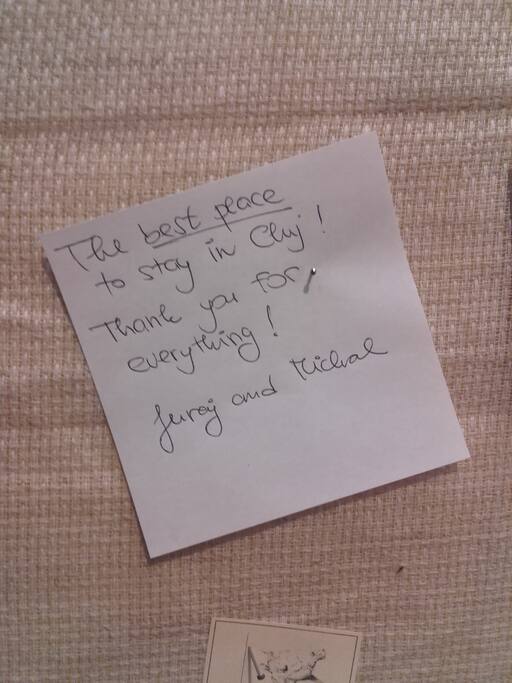 The best place
to stay in Cluj!
Thank you for
everything!
Juraj and Michal